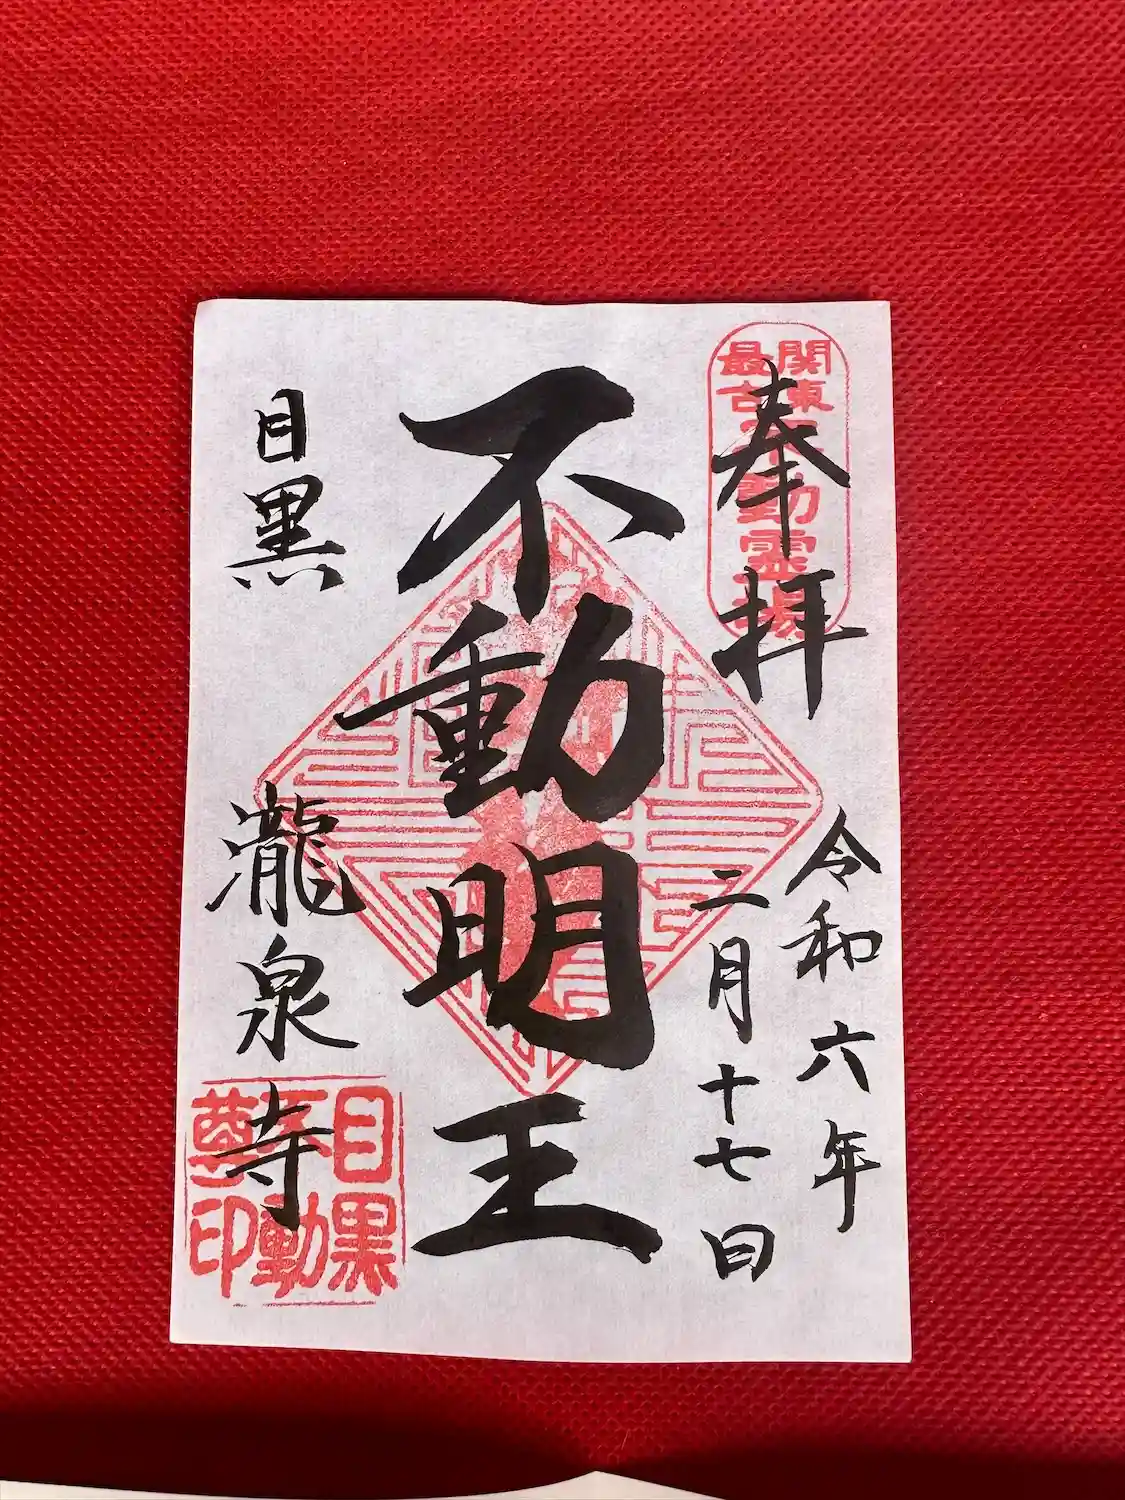 奉拝
関東
最古
不動霊場
令和六年
二月十七日
不動明王
目黒
瀧泉寺
目黒
不動
尊印